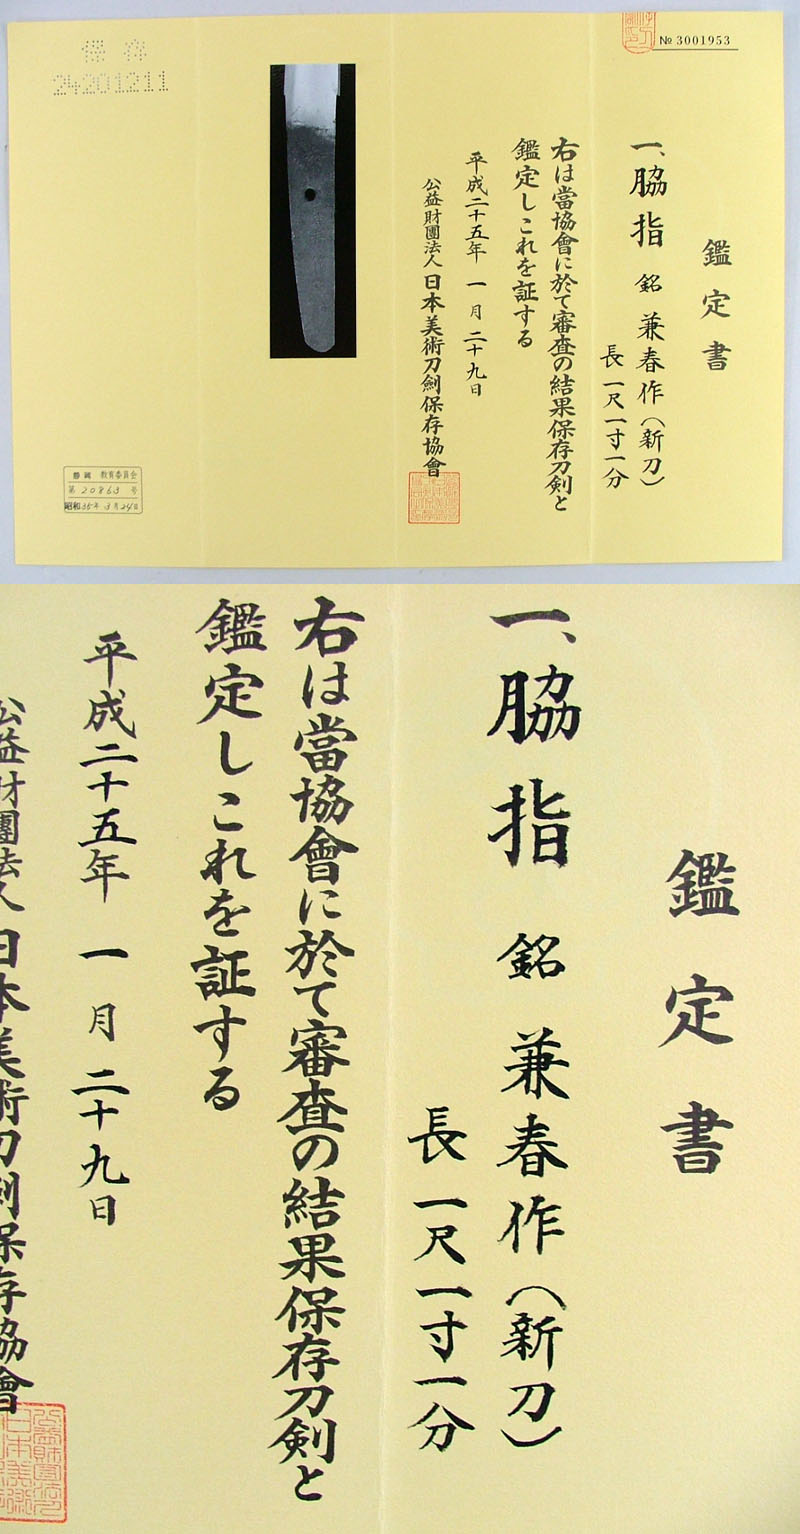 № 3001953
鑑定書
一、脇指 銘 兼春作(新刀)
長 一尺一寸一分
右は當協會に於て審査の結果保存刀剣と
鑑定しこれを証する
平成二十五年 一月二十九日
公益財團法人 日本美術刀劍保存協會
保存
24201211
静岡 教育委員会
第 20863 号
昭和35年3月24日
鑑定書
一、脇指 銘 兼春作(新刀)
長 一尺一寸一分
右は當協會に於て審査の結果保存刀剣と
鑑定しこれを証する
平成二十五年 一月二十九日
公益財團法人 日本美術刀劍保存協會